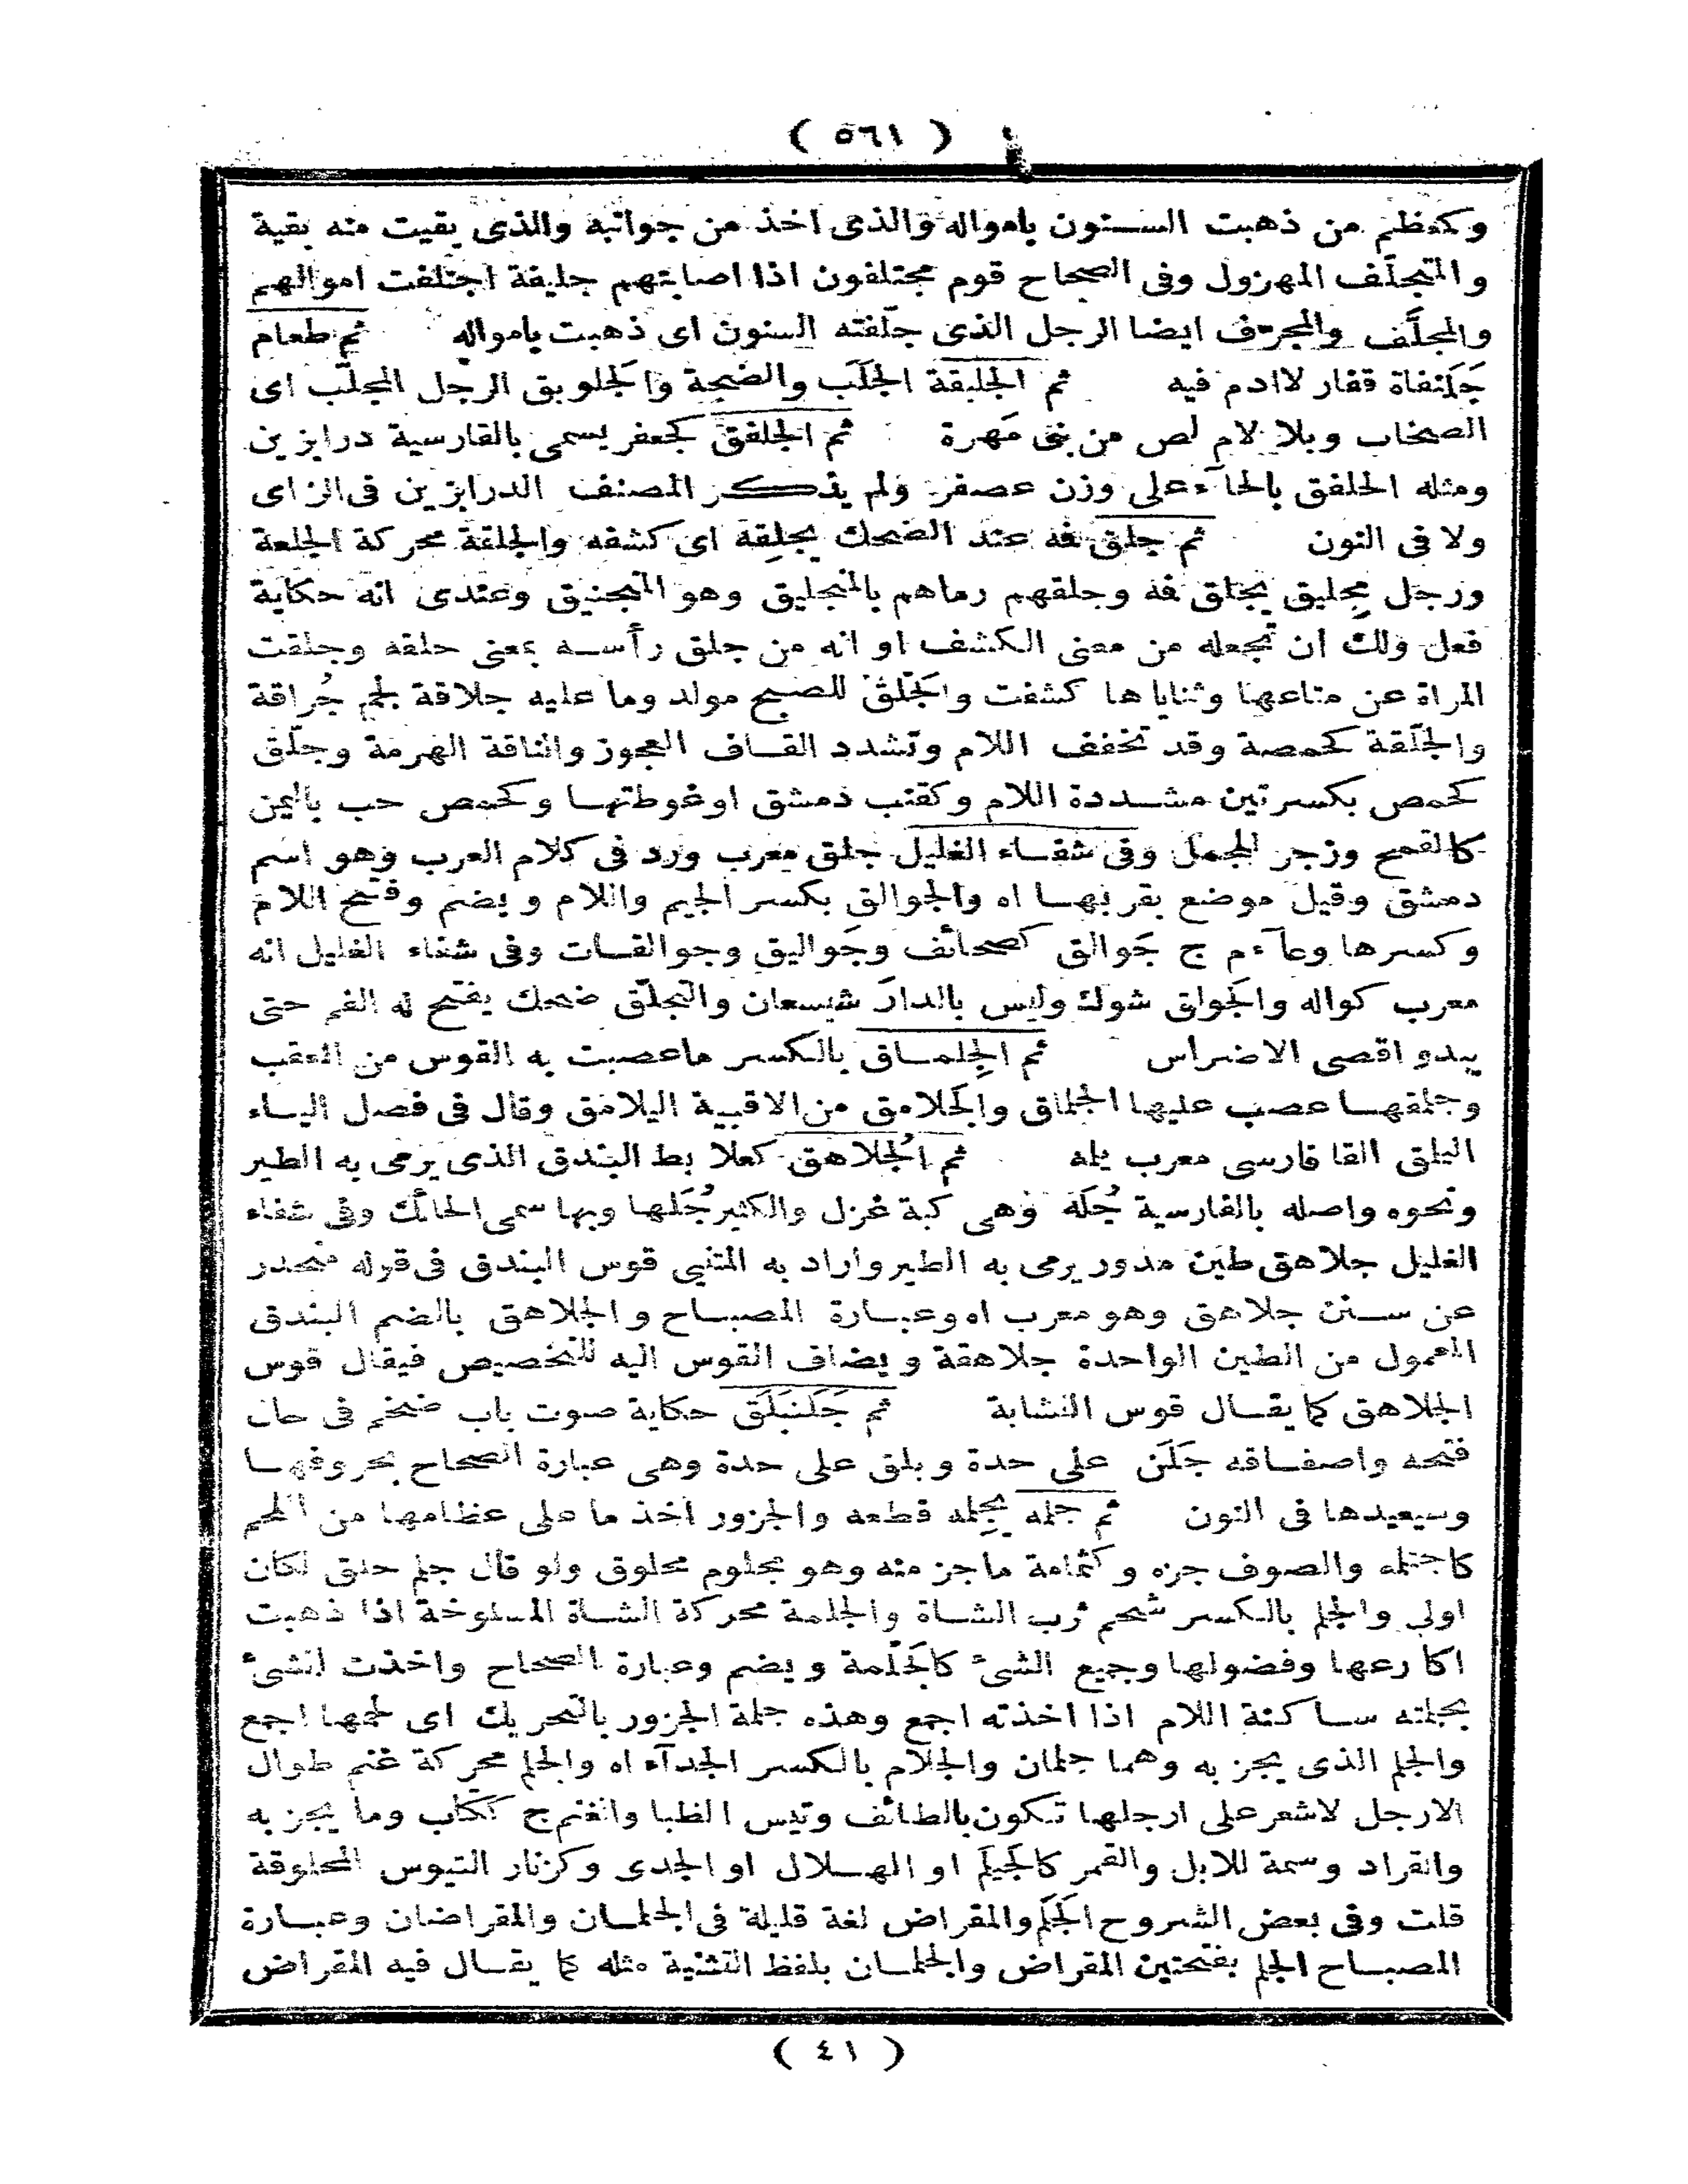 ( ٥٦١ )
وكمعظم من ذهبت السنون بامواله والذى اخذ من جوانبه والذى بقيت منه بقية
والمتجلَّف المهزول وفى الصحاح قوم مجتلفون اذا اصابتهم جليفة اجتلفت اموالهم
والمجلَّف والمجرّف ايضا الرجل الذى جلّفته السنون اى ذهبت بامواله ثم طعام
جَلَنفاة قفار لاادم فيه ثم الجليقة الجَلَب والضجة والجلوبق الرجل المجلّب اى
الصخاب وبلا لام لص من بنى مَهرة ثم الجلفق كجعفر يسمى بالفارسية درابزين
ومثله الحلفق بالحآء على وزن عصفر ولم يذكر المصنف الدرابزين فى الزاى
ولا فى النون ثم جلق فه عند الضحك يجلِقه اى كشفه والجلقة محركة الجلعة
ورجل مِجليق يجلق فه وجلقهم رماهم بالمنجليق وهو المنجنيق وعندى انه حكاية
فعل ولك ان تجعله من معنى الكشف او انه من جلق رأسه بمعنى حلقه وجلقت
المراة عن متاعها وثناياها كشفت والجَلَق للصبح مولد وما عليه جلاقة لحم جُراقة
والجلّقة كحمصة وقد تخفف اللام وتشدد القاف العجوز والناقة الهرمة وجلّق
كحمص بكسرتين مشددة اللام وكقنب دمشق اوغوطتها وكحمص حب باليمن
كالقمح وزجر للجمل وفى شفاء الغليل جلق معرب ورد فى كلام العرب وهو اسم
دمشق وقيل موضع بقربها اه والجوالق بكسر الجيم واللام وبضم وفتح اللام
وكسرها وعآء م ج جَوالق كصحائف وجَواليق وجوالقات وفى شفاء الغليل انه
معرب كواله والجَولق شوك وليس بالدارَ شيسعان والتجلّق ضحك يفتح له الفم حتى
يبدو اقصى الاضراس ثم الجِلماق بالكسر ماعصبت به القوس من العقب
وجلمقها عصب عليها الجلماق والجَلامق من الاقبية اليلامق وقال فى فصل الياء
اليلمق القبا فارسى معرب يلمه ثم الجُلاهق كعلابط البندق الذى يرمى به الطير
ونحوه واصله بالفارسية جُلَه وهى كبة غزل والكثير جُلَها وبها سمى الحائك وفى شفاء
الغليل جلاهق طين مدور يرمى به الطير واراد به المتنبى قوس البندق فى قوله منحدر
عن سنن جلاهق وهو معرب اه وعبارة المصباح والجلاهق بالضم البندق
المعمول من الطين الواحدة جلاهقة ويضاف القوس اليه للتخصيص فيقال قوس
الجلاهق كما يقال قوس النشابة ثم جَلَنبَلَق حكاية صوت باب ضخم فى حال
فتحه واصفاقه جَلَن على حدة وبلق على حدة وهى عبارة الصحاح بحروفها
وسيعيدها فى النون ثم جلمه يجلِمه قطعه والجزور اخذ ما على عظامها من اللحم
كاجتلمه والصوف جزه وكثمامة ما جز منه وهو مجلوم محلوق ولو قال جلم حلق لكان
اولى والجلم بالكسر شحم ثرب الشاة والجلمة محركة الشاة المسلوخة اذا ذهبت
اكارعها وفضولها وجميع الشئ كالجَلْمة ويضم وعبارة الصحاح واخذت الشئ
بجلمته ساكنة اللام اذا اخذته اجمع وهذه جلمة الجزور بالتحريك اى لحمها اجمع
والجلم الذى يجز به وهما جلمان والجلام بالكسر الجدآء اه والجلم محركة غنم طوال
الارجل لاشعر على ارجلها تكون بالطائف وتيس الظبا والغنم ج ككتاب وما يجز به
والقراد وسمة للابل والقمر كالجَيلم او الهلال او الجدى وكزنار التيوس المحلوقة
قلت وفى بعض الشروح الجَلَم والمقراض لغة قليلة فى الجلمان والمقراضان وعبارة
المصباح الجلم بفتحتين المقراض والجلمان بلفظ التثنية مثله كما يقال فيه المقراض
( ٤١ )